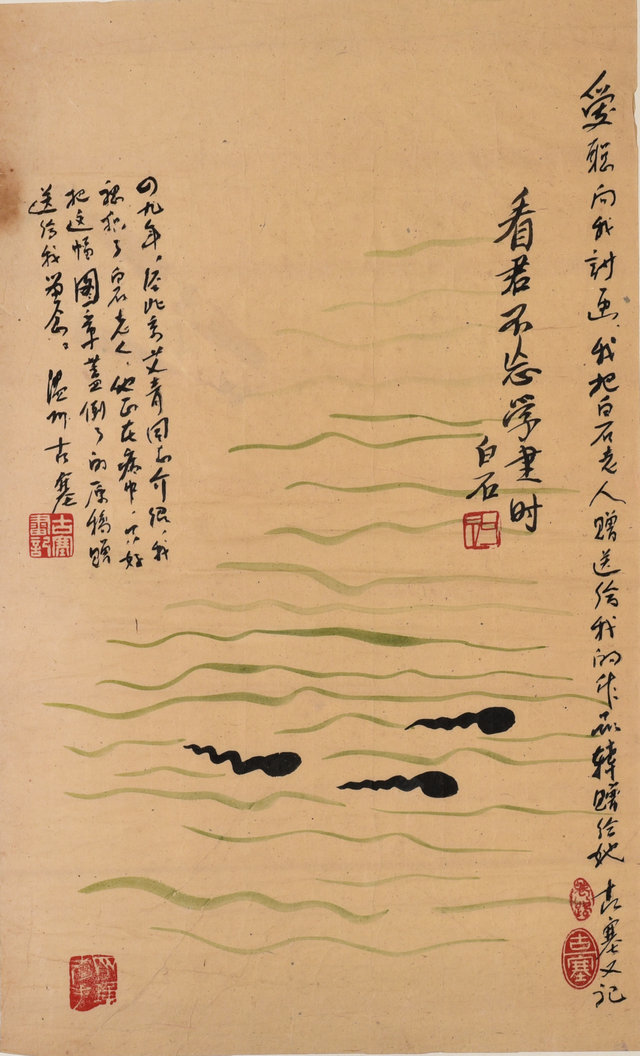 愛聪向我討画，我把白石老人赠送给我的作品转赠给她 古塞又记
看君不忘学畫时
白石
四九年，经北京艾青同志介绍，我
认识了白石老人，他正在病中，只好
把这幅圖章蓋倒了的原稿赠
送给我留念。温州古塞
古塞